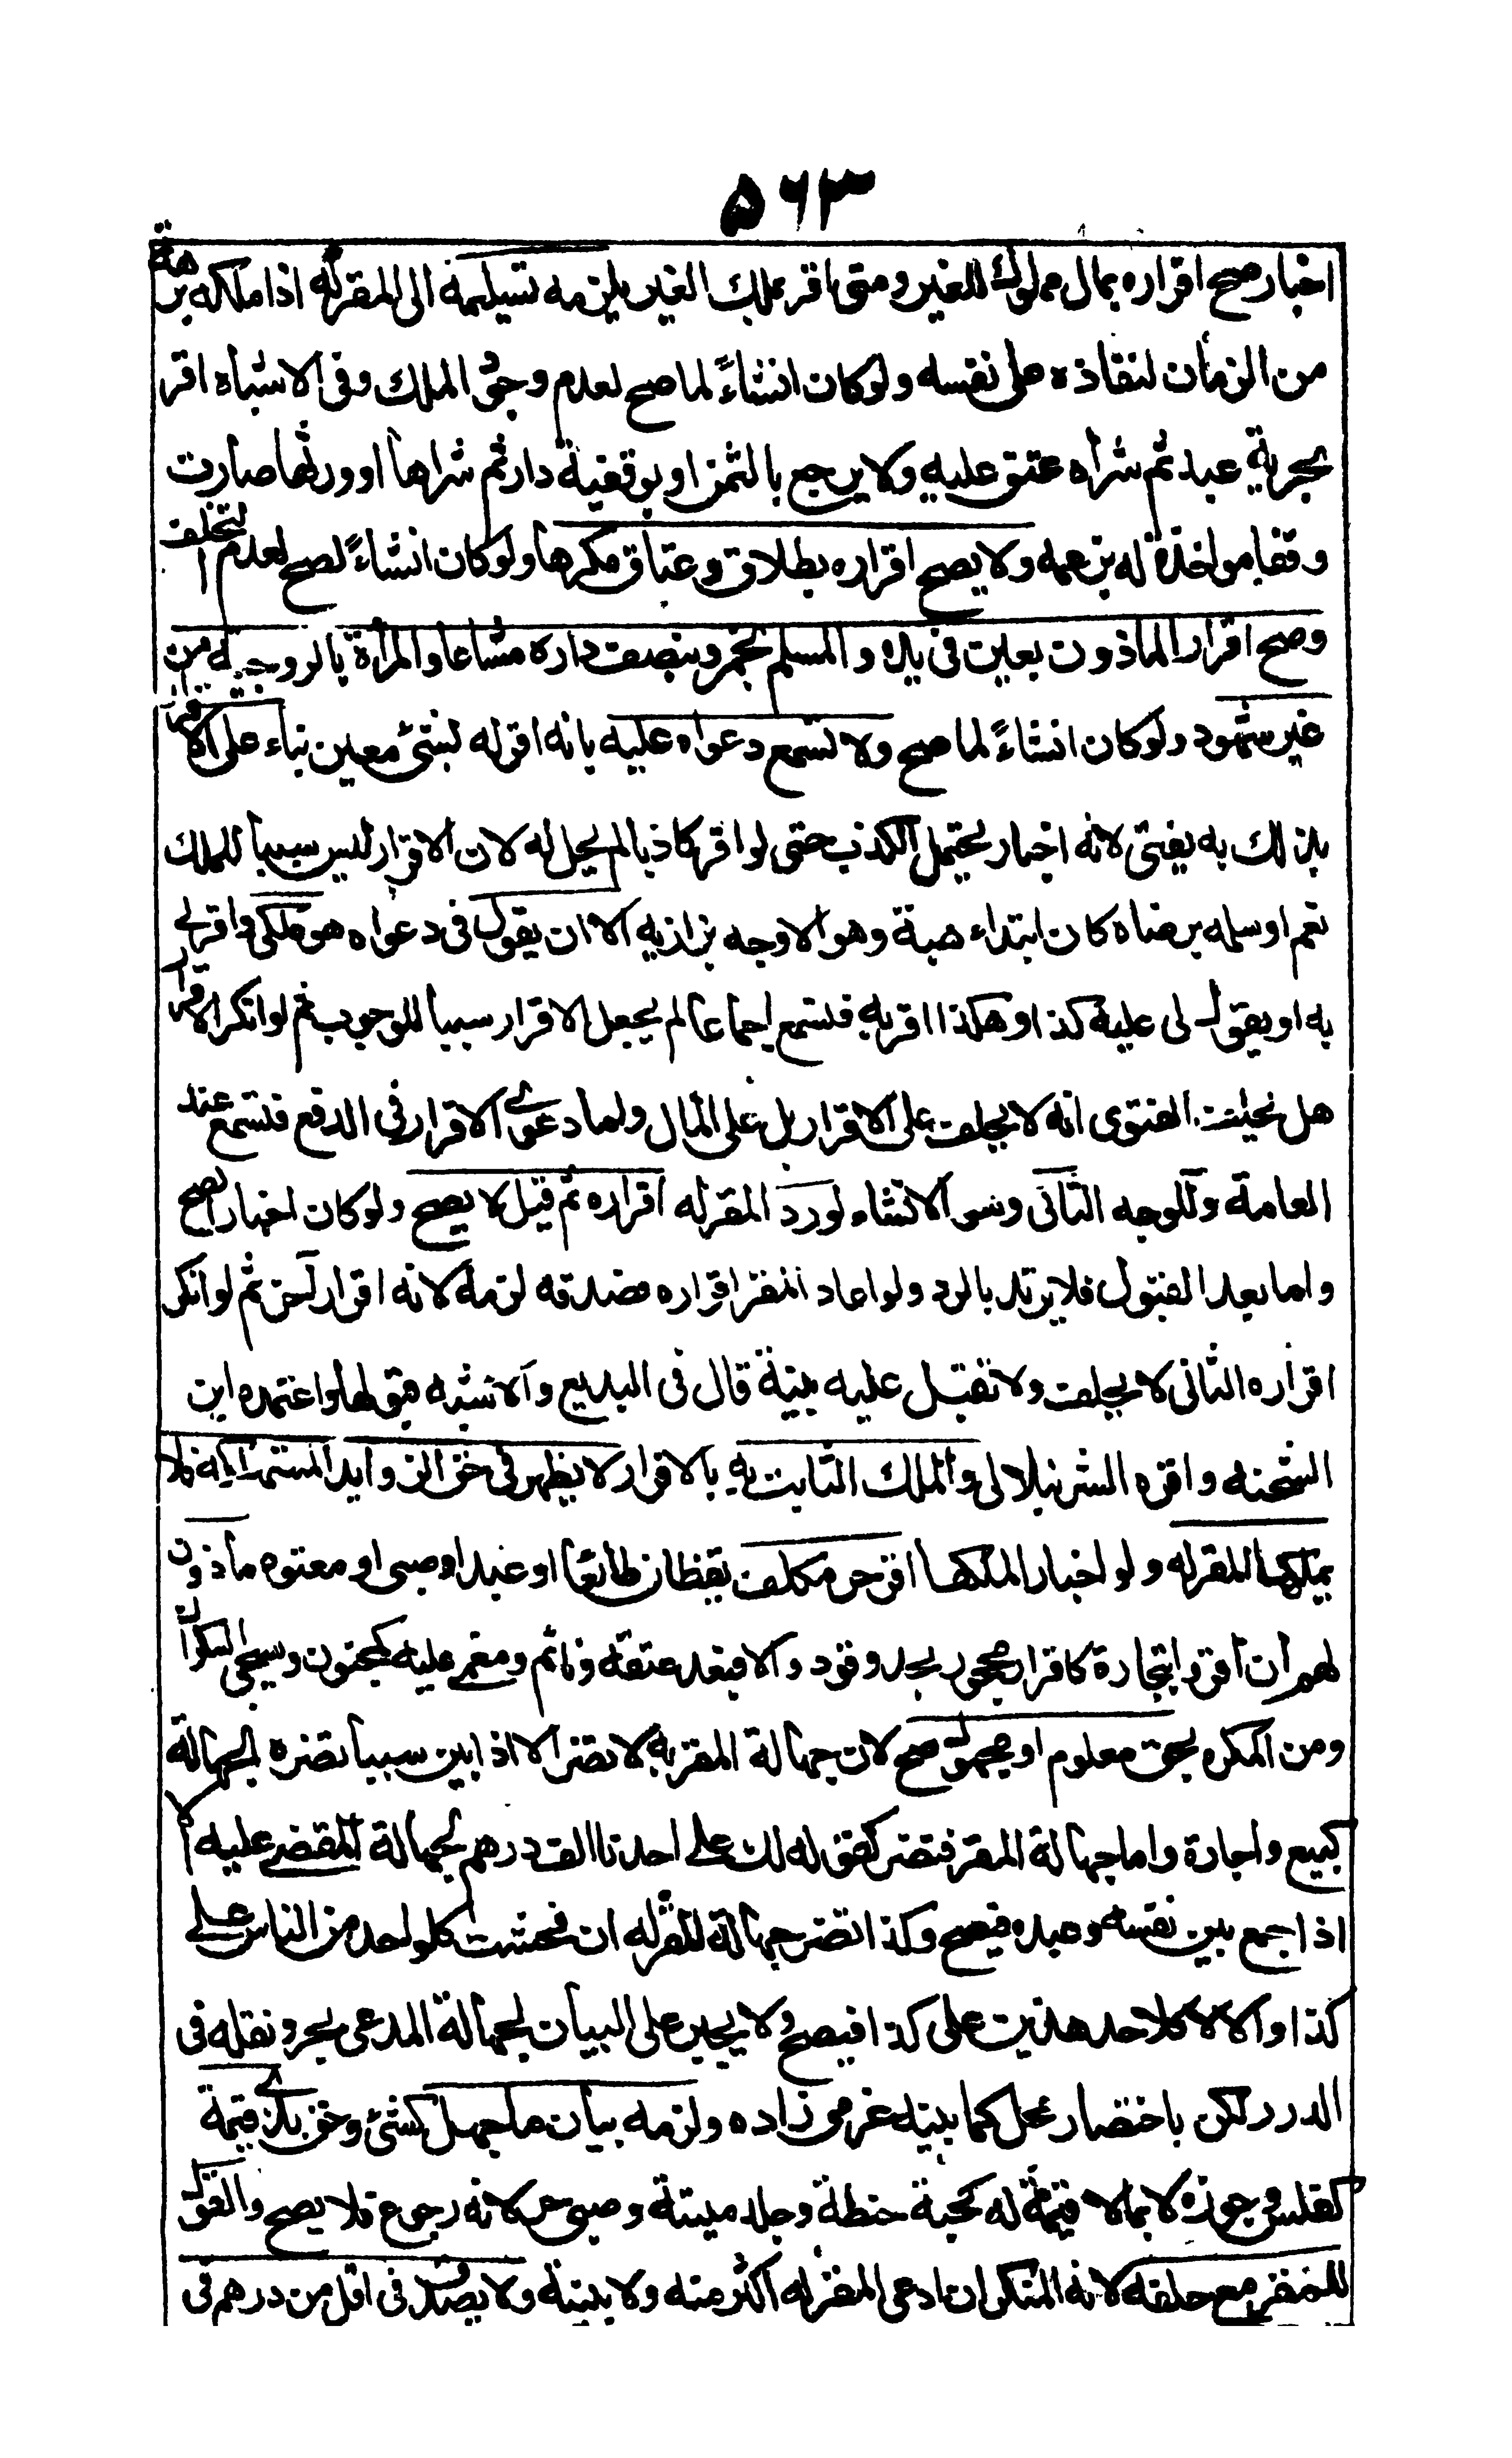 ٥٦٣
اخبار صح اقراره بمال مملوك للغير ومتى اقر بملك الغير يلزمه تسليمه الى المقر له اذا ملكه برهة
من الزمان لنفاذه على نفسه ولو كان انشاءً لما صح لعدم وجود الملك وفى الاشباه اقر
بحرية عبد ثم شراه عتق عليه ولا يرجع بالثمن او بوقفية دار ثم شراها او ورثها صارت
وقفا مواخذة له بزعمه ولا يصح اقراره بطلاق وعتاق مكرها ولو كان انشاءً لصح لعدم التخلف
وصح اقرار الماذون بعين فى يده والمسلم بخمر وبنصف داره مشاعا والمرأة بالزوجية من
غير شهود ولو كان انشاءً لما صح ولا تسمع دعواه عليه بانه اقر له بشئ معين بناء على الاقرار
بذلك به يفتى لانه اخبار يحتمل الكذب حتى لو اقر كاذبا لم يحل له لان الاقرار ليس سببا للملك
نعم لو سلمه برضاه كان ابتداء هبة وهو الاوجه بزازيه الا ان يقول فى دعواه هو ملكى واقر لى
به او يقول لى عليه كذا وهكذا اقر به فتسمع اجماعا لم يجعل الاقرار سببا للوجوب ثم لو انكر الاقرار
هل يحلف الفتوى انه لا يحلف على الاقرار بل على المال واما دعوى الاقرار فى الدفع فتسمع عند
العامة وللوجه الثانى وهو الانشاء لو رد المقر له اقراره ثم قبل لا يصح ولو كان اخبارا لصح
واما بعد القبول فلا يرتد بالرد ولو اعاد المقر اقراره فصدقه لزمه لانه اقرار آخر ثم لو انكر
اقراره الثانى لا يحلف ولا تقبل عليه بينة قال فى البديع والاشبه قبولها واعتمده ابن
الشحنه واقره الشرنبلالى والملك الثابت به بالاقرار لا يظهر فى حق الزوايد المستهلكة فلا
يملكها المقر له ولو اخبارا لملكها اقر حر مكلف يقظان طائعا او عبد او صبى او معتوه ماذون
لهم ان اقروا بتجارة كاقرار محجور بحد وقود والا فبعد عتقه ونائم ومغمى عليه كمجنون وسيجئ السكران
ومر المكره بحق معلوم او مجهول صح لان جهالة المقر به لا تضر الا اذا بين سببا تضره الجهالة
كبيع واجارة واما جهالة المقر فتضر كقوله لك على احدنا الف درهم لجهالة المقضى عليه الا
اذا جمع بين نفسه وعبده فيصح وكذا تضر جهالة المقر له ان فحشت كلواحد من الناس على
كذا والا لا كلاحد هذين على كذا فيصح ولا يجبر على البيان لجهالة المدعى بحر ونقله فى
الدرر لكن باختصار مخل كما بينه عزمى زاده ولزمه بيان ما جهل كشئ وحق بذى قيمة
كفلس وجوزه لا بما لا قيمة له كحبة حنطة وجلد ميتة وصبى حر لانه رجوع فلا يصح والقول
للمقر مع حلفه لانه المنكر ان ادعى المقر له اكثر منه ولا بينة ولا يصدق فى اقل من درهم فى